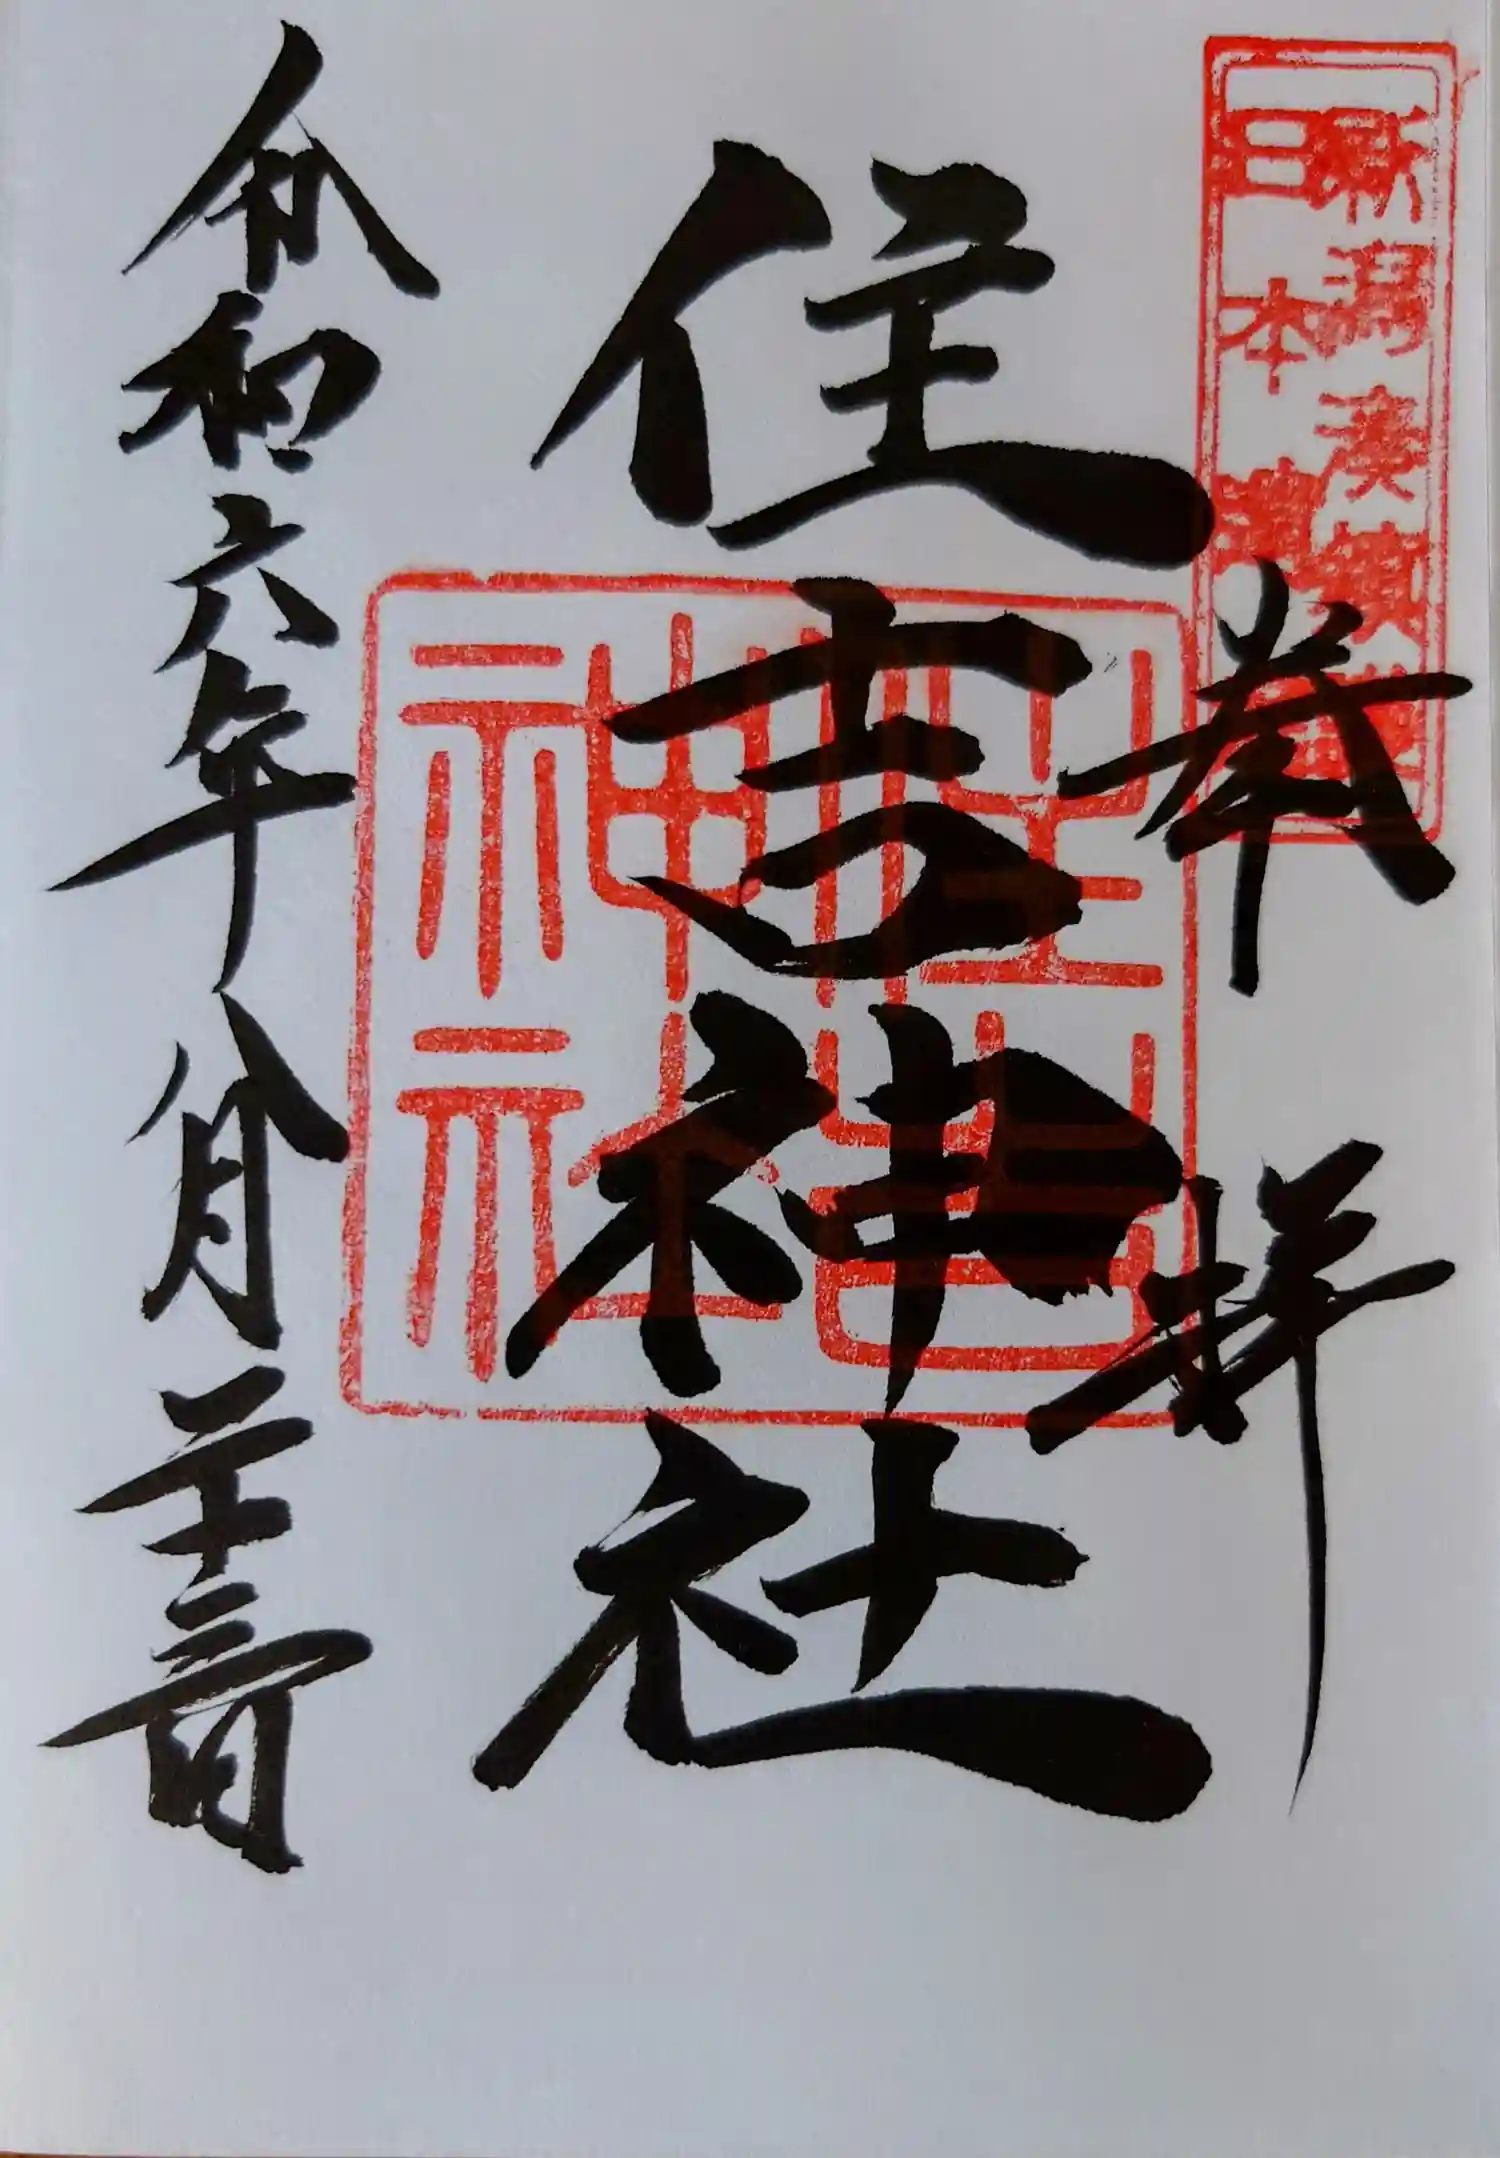 新潟湊
日本
奉拝
住吉神社
住吉
神社
令和六年八月二十三日